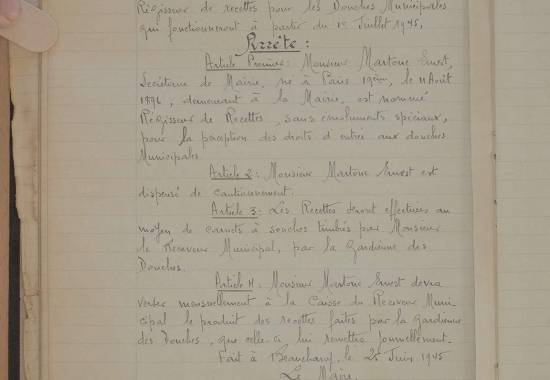 Régisseur de recettes pour les Douches Municipales
qui fonctionneront à partir du 1er Juillet 1945,
Arrête :
Article Premier : Monsieur Martone Ernest,
Secrétaire de Mairie, né à Paris 19ème, le 11 Août
1896, demeurant à la Mairie, est nommé
Régisseur de Recettes, sans émoluments spéciaux,
pour la perception des droits d'entrée aux douches
Municipales.
Article 2 : Monsieur Martone Ernest est
dispensé de cautionnement.
Article 3 : Les Recettes seront effectuées au
moyen de carnets à souches timbrés par Monsieur
le Receveur Municipal, par la gardienne des
Douches.
Article 4 : Monsieur Martone Ernest devra
verser mensuellement à la Caisse du Receveur Muni-
cipal le produit des recettes faites par la gardienne
des Douches, que celle-ci lui remettra journellement.
Fait à Beauchamp, le 25 Juin 1945
Le Maire,